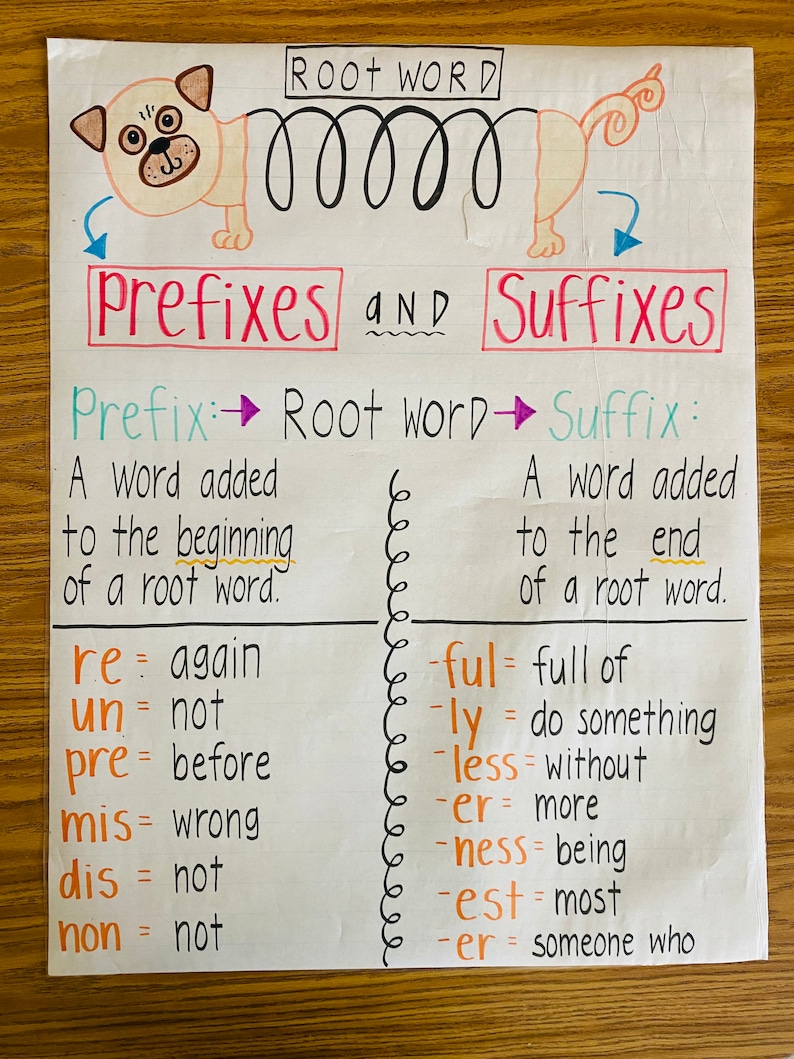 ROOt WORD
Prefixes aND Suffixes
Prefix: Root worD Suffix:
A word added
to the beginning
of a root word.
A word added
to the end
of a root word.
re = again
un = not
pre = before
mis = wrong
dis = not
non = not
-ful = full of
-ly = do something
-less = without
-er = more
-ness = being
-est = most
-er = someone who